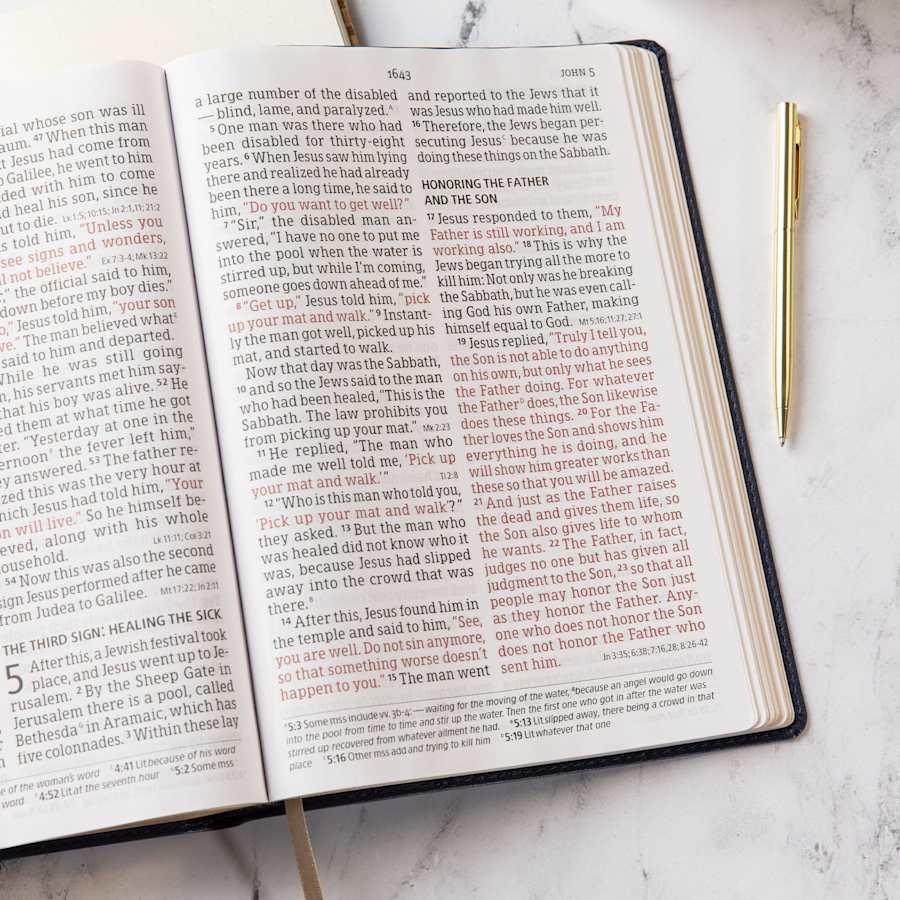 ial whose son was ill
aum. ⁴⁷ When this man
t Jesus had come from
Galilee, he went to him
ded with him to come
d heal his son, since he
ut to die. Lk 1:5; 10:15; Jn 2:1,11; 21:2
s told him, "Unless you
see signs and wonders,
ll not believe." Ex 7:3-4; Mk 13:22
" the official said to him,
down before my boy dies."
," Jesus told him, "your son
ve." The man believed what
said to him and departed.
While he was still going
n, his servants met him say-
that his boy was alive. ⁵² He
ed them at what time he got
ter. "Yesterday at one in the
ernoon the fever left him,"
ey answered. ⁵³ The father re-
zed this was the very hour at
hich Jesus had told him, "Your
on will live." So he himself be-
eved, along with his whole
ousehold. Lk 11:11; Col 3:21
⁵⁴ Now this was also the second
sign Jesus performed after he came
from Judea to Galilee. Mt 17:22; Jn 2:11
THE THIRD SIGN: HEALING THE SICK
5 After this, a Jewish festival took
place, and Jesus went up to Je-
rusalem. ² By the Sheep Gate in
Jerusalem there is a pool, called
Bethesda in Aramaic, which has
five colonnades. ³ Within these lay
e of the woman's word 4:41 Lit because of his word
word 4:52 Lit at the seventh hour 5:2 Some mss
1643
JOHN 5
a large number of the disabled
— blind, lame, and paralyzed.ᴬ
⁵ One man was there who had
been disabled for thirty-eight
years. ⁶ When Jesus saw him lying
there and realized he had already
been there a long time, he said to
him, "Do you want to get well?"
⁷ "Sir," the disabled man an-
swered, "I have no one to put me
into the pool when the water is
stirred up, but while I'm coming,
someone goes down ahead of me."
⁸ "Get up," Jesus told him, "pick
up your mat and walk." ⁹ Instant-
ly the man got well, picked up his
mat, and started to walk.
Now that day was the Sabbath,
¹⁰ and so the Jews said to the man
who had been healed, "This is the
Sabbath. The law prohibits you
from picking up your mat." Mk 2:23
¹¹ He replied, "The man who
made me well told me, 'Pick up
your mat and walk.'" Ti 2:8
¹² "Who is this man who told you,
'Pick up your mat and walk'?"
they asked. ¹³ But the man who
was healed did not know who it
was, because Jesus had slipped
away into the crowd that was
there.ᴮ
¹⁴ After this, Jesus found him in
the temple and said to him, "See,
you are well. Do not sin anymore,
so that something worse doesn't
happen to you." ¹⁵ The man went
and reported to the Jews that it
was Jesus who had made him well.
¹⁶ Therefore, the Jews began per-
secuting Jesusᶜ because he was
doing these things on the Sabbath.
HONORING THE FATHER
AND THE SON
¹⁷ Jesus responded to them, "My
Father is still working, and I am
working also." ¹⁸ This is why the
Jews began trying all the more to
kill him: Not only was he breaking
the Sabbath, but he was even call-
ing God his own Father, making
himself equal to God. Mt 5:16; 11:27; 27:1
¹⁹ Jesus replied, "Truly I tell you,
the Son is not able to do anything
on his own, but only what he sees
the Father doing. For whatever
the Fatherᴰ does, the Son likewise
does these things. ²⁰ For the Fa-
ther loves the Son and shows him
everything he is doing, and he
will show him greater works than
these so that you will be amazed.
²¹ And just as the Father raises
the dead and gives them life, so
the Son also gives life to whom
he wants. ²² The Father, in fact,
judges no one but has given all
judgment to the Son, ²³ so that all
people may honor the Son just
as they honor the Father. Any-
one who does not honor the Son
does not honor the Father who
sent him. Jn 3:35; 6:38; 7:16,28; 8:26-42
ᴬ5:3 Some mss include vv. 3b-4: — waiting for the moving of the water, ⁴because an angel would go down
into the pool from time to time and stir up the water. Then the first one who got in after the water was
stirred up recovered from whatever ailment he had. ᴮ5:13 Lit slipped away, there being a crowd in that
place ᶜ5:16 Other mss add and trying to kill him ᴰ5:19 Lit whatever that one